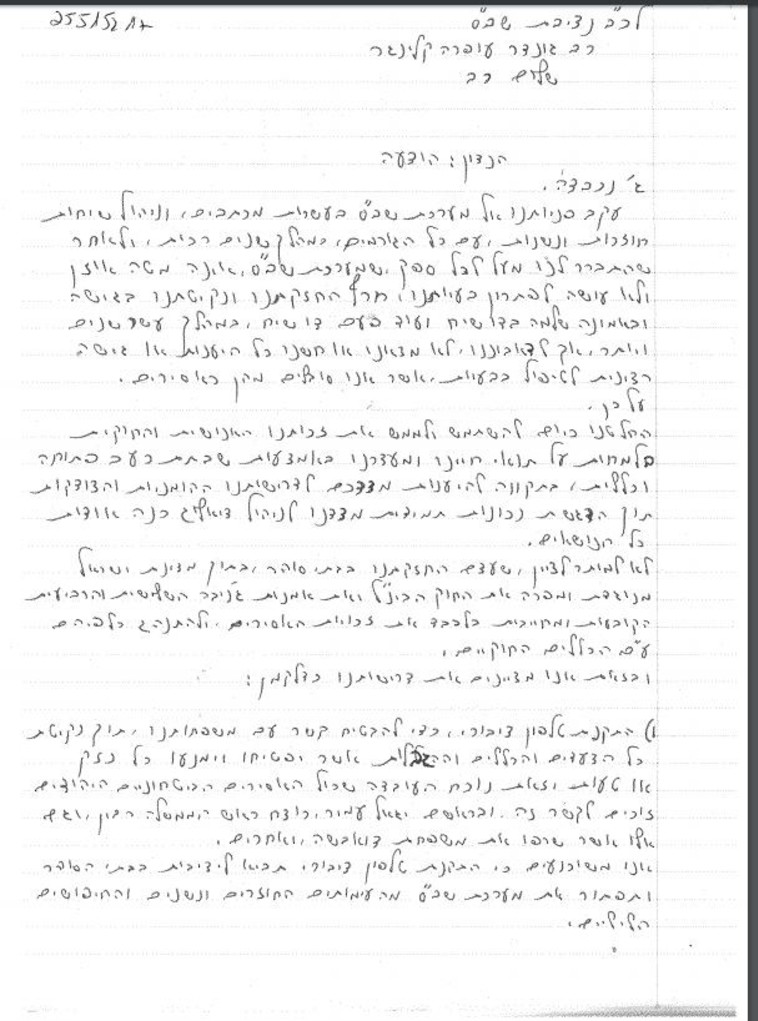 לכב' נציבת שב"ס
רב גונדר עופרה קלינגר
שלום רב
הנדון: הודעה
ג' נכבדה,
עקב פניותנו אל מערכת שב"ס בעשרות מכתבים, וניהול שיחות
חוזרות ונשנות, עם כל הגורמים, במהלך שנים רבות, ולאחר
שהתברר לנו מעל לכל ספק, שמערכת שב"ס, אינה מטה אוזן
ולא עושה לפתרון בעיותנו, חרף החזקתנו ונקיטתנו בגישה
ובאמונה שלמה בדו שיח ועוד פעם דו שיח, במהלך עשר שנים
ויותר, אך לדאבוננו, לא מצאנו או חשנו כל היענות או גישה
רצינית לטיפול בבעיות, אשר אנו סובלים מהן כאסירים.
על כן,
החלטנו כיום להשתמש ולממש את זכותנו האנושית והחוקית
בלמחות על תנאי חיינו ומעצרנו באמצעות שבתת רעב פתוחה
וכללית, בתקווה להיענות מצדכם לדרישותנו ההומניות והצודקות
תוך הדגשת נכונות תמידית מצדנו לניהול דיאלוג כנה אודות
כל הנושאים.
לא למותר לציין, שעצם החזקתנו בבתי סוהר, בתוך מדינת ישראל
מנוגדת ומפרה את החוק הבינ"ל ואת אמנות ג'ניבה השלישית והרביעית
הקובעות ומחייבות בלכבד את זכויות האסירים, ולהתנהג כלפיהם
ע"פ הכללים החוקיים.
ובזאת אנו מציינים את דרישותנו כדלקמן:
1) התקנת טלפון ציבורי, כדי להבטיח קשר עם משפחותנו, תוך נקיטת
כל הצעדים והכללים וההגבלות אשר יבטיחו וימנעו כל נזק
או טעות וזאת נוכח העובדה שכול האסירים הביטחוניים היהודים
זוכים לקשר זה, ובראשם יגאל עמיר, רוצח ראש הממשלה רבין, וגם
אלו אשר שרפו את משפחת דוואבשה, ואחרים.
אנו משוכנעים כי התקנת טלפון ציבורי תביא ליציבות בבתי הסוהר
ותפתור את מערכת שב"ס מהעימותים החוזרים ונשנים והחיפושים
הליליים.